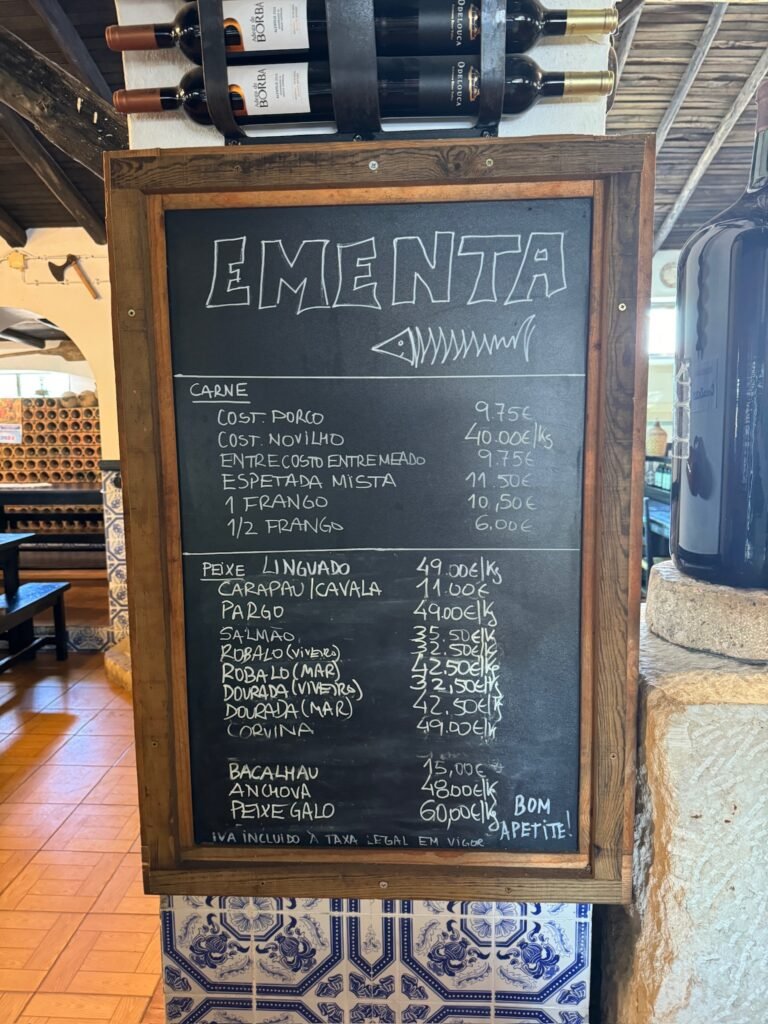 Adega de BORBA
ODELOUCA
Adega de BORBA
ODELOUCA
EMENTA
CARNE
COST. PORCO 9.75€
COST. NOVILHO 40.00€/Kg
ENTRECOSTO ENTREMEADO 9.75€
ESPETADA MISTA 11.50€
1 FRANGO 10,50€
1/2 FRANGO 6,00€
PEIXE LINGUADO 49.00€/Kg
CARAPAU/CAVALA 11.00€
PARGO 49.00€/Kg
SALMÃO 35.50€/Kg
ROBALO (VIVEIRO) 32.50€/Kg
ROBALO (MAR) 42.50€/Kg
DOURADA (VIVEIRO) 32,50€/Kg
DOURADA (MAR) 42.50€/Kg
CORVINA 49.00€/Kg
BACALHAU 15,00€
ANCHOVA 48.00€/Kg
PEIXE GALO 60,00€/Kg
BOM
APETITE!
IVA INCLUIDO À TAXA LEGAL EM VIGOR